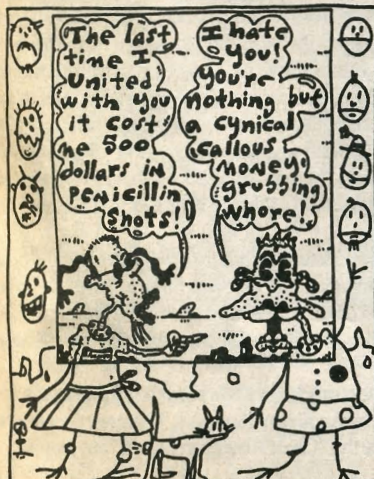 The last
time I
United
with you
it cost
me 500
dollars in
Penicillin
Shots!
I hate
you!
You're
nothing but
a cynical
callous
money-
grubbing
whore!